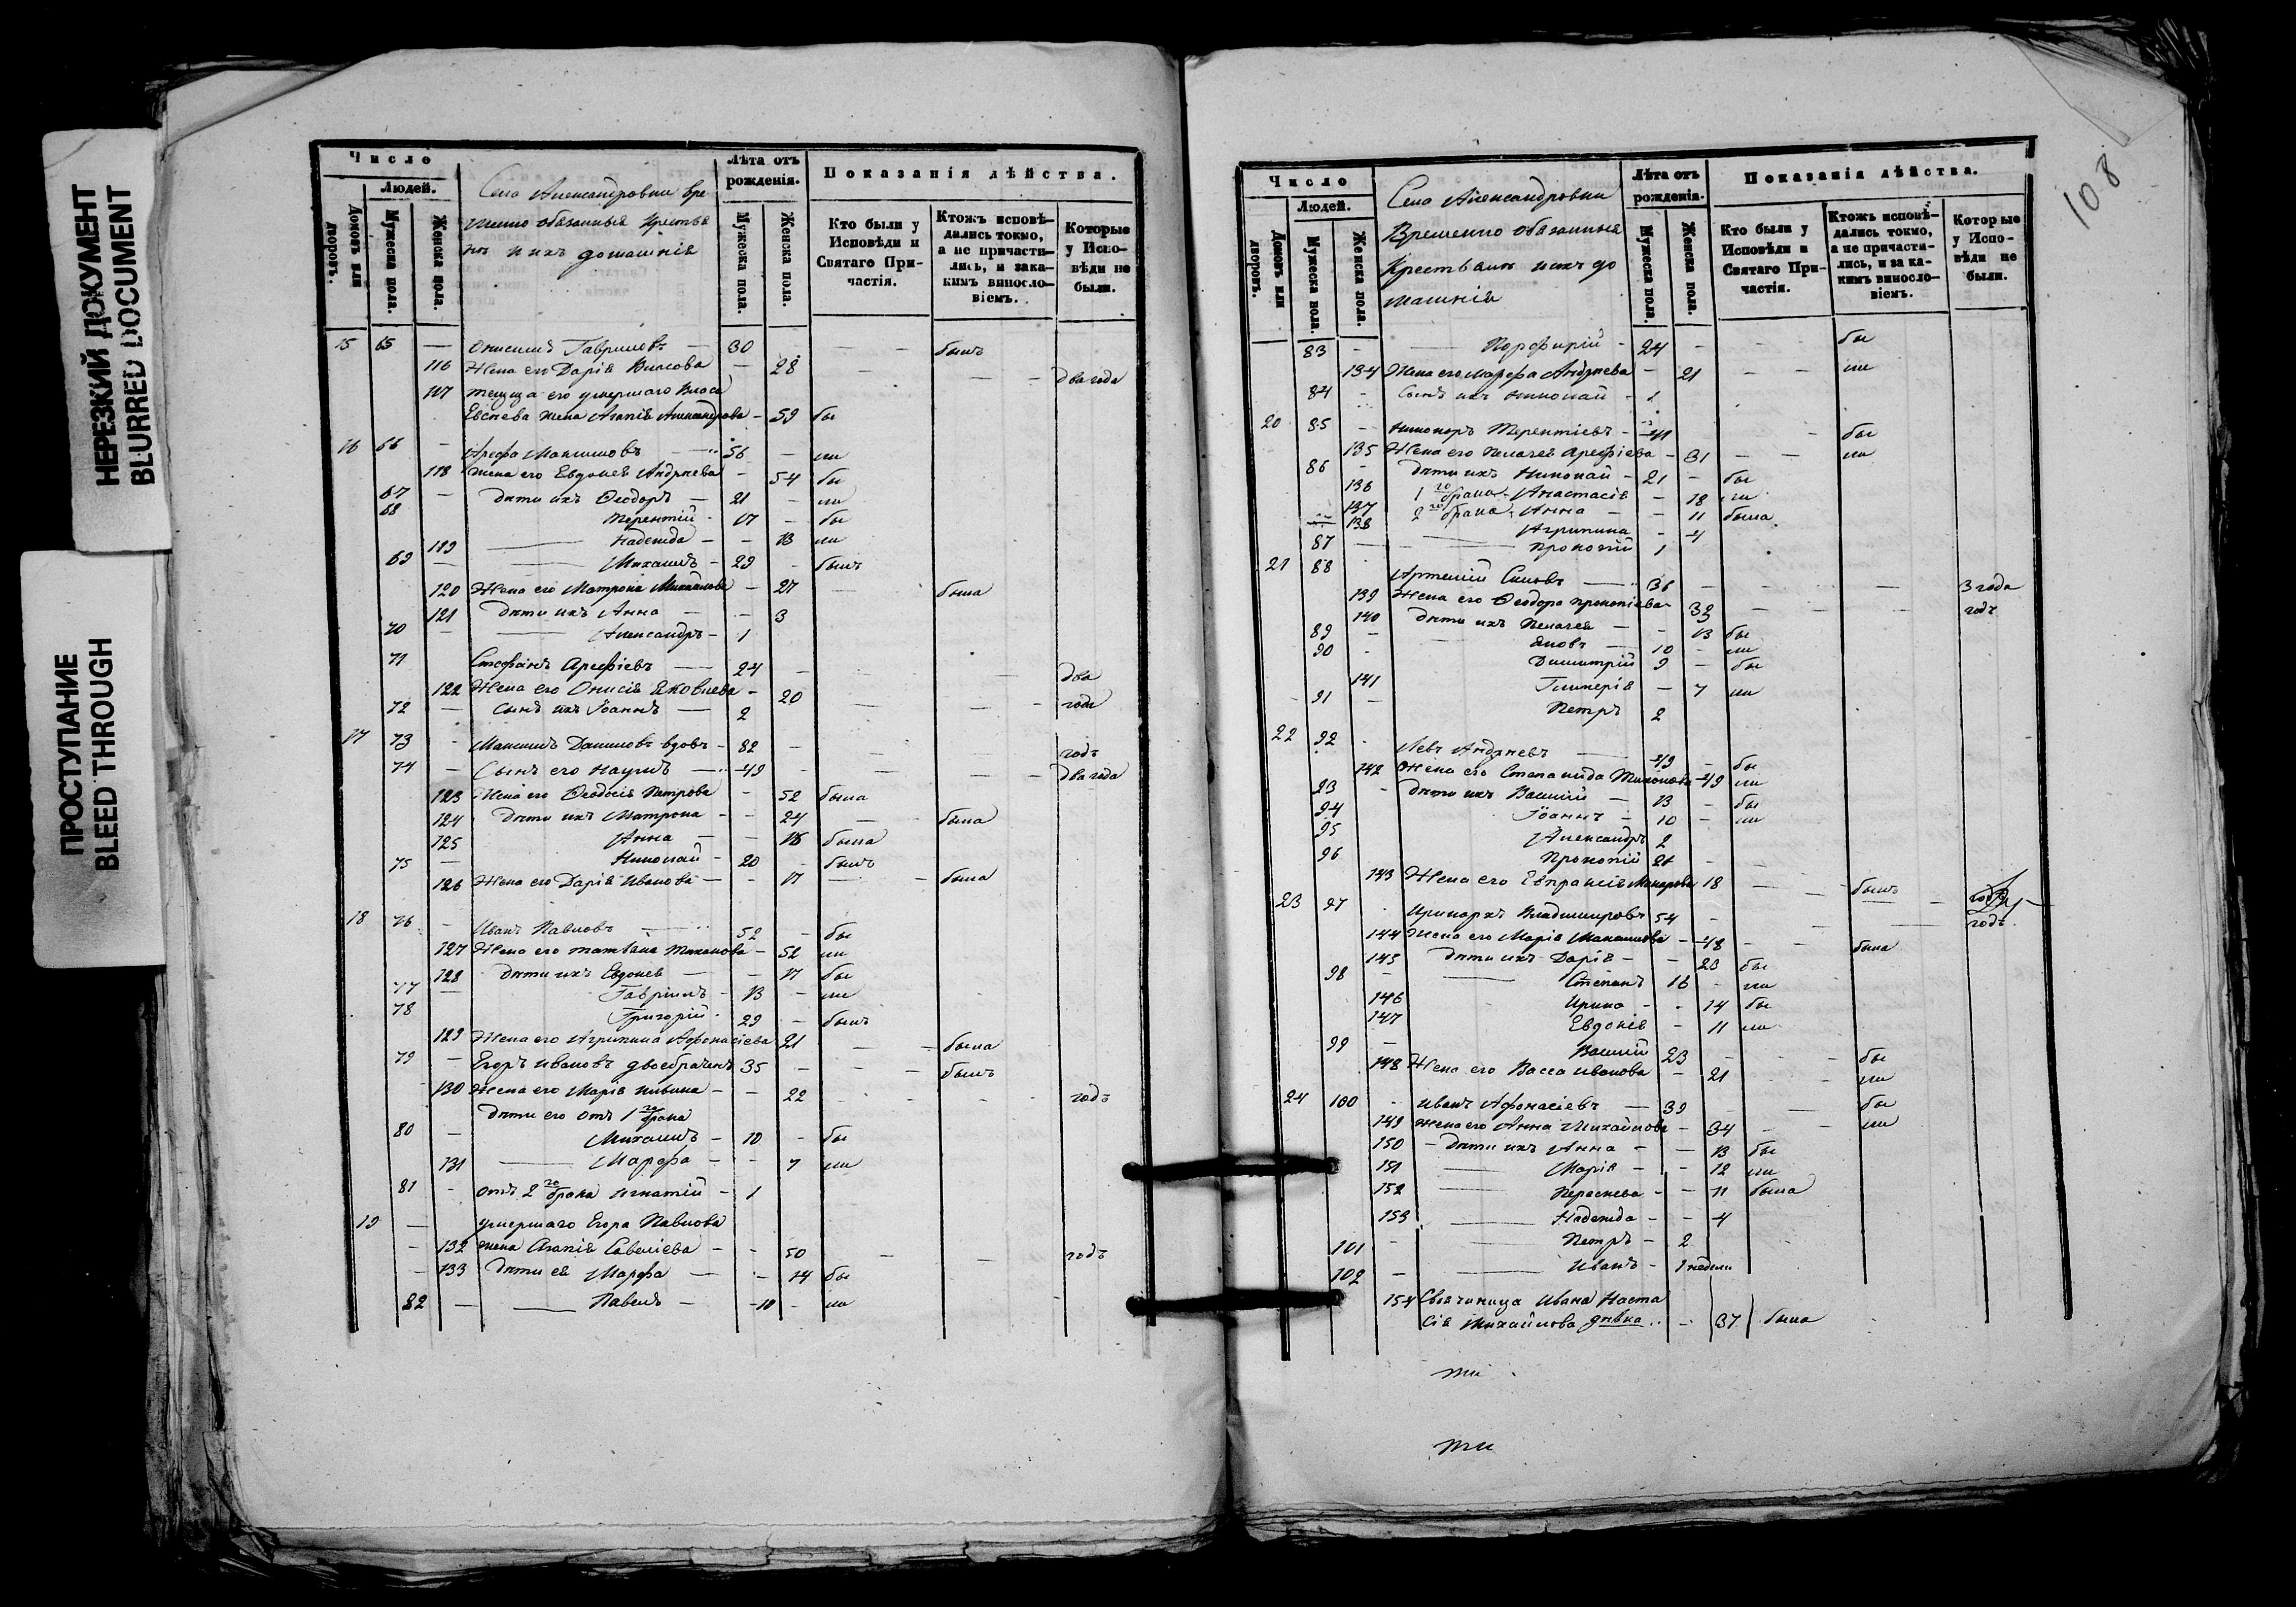 НЕРЕЗКИЙ ДОКУМЕНТ
BLURRED DOCUMENT
ПРОСТУПАНИЕ
BLEED THROUGH
Число
Людей.
Домовъ или дворовъ.
Мужеска пола.
Женска пола.
Село Александровки вре
менно обязанные Крестья
нѣ и ихъ домашнія
Лѣта отъ рожденія.
Мужеска пола.
Женска пола.
Показанія дѣйства.
Кто были у Исповѣди и Святаго При-частія.
Ктожъ исповѣ-дались токмо, а не причасти-лись, и зака-кимъ виносло-віемъ.
Которые у Испо-вѣди не были.
15 65 — Онисимъ Гавриловъ 30 — — былъ
116 Жена его Дарія Власова — 28 — — два года
117 теща его умершаго Власа
Евсѣева жена Агапія Александрова — 59 бы
16 66 — Арефа Максимовъ — 56 — ли
118 жена его Евдокія Андреева — 54 бы
67 — дѣти ихъ Ѳеодоръ — 21 — ли
68 Терентій 17 — бы
119 — Надежда — — 13 ли
69 — Михаилъ — 29 — былъ
120 Жена его Матрона Михайлова — 27 — была
121 дѣти ихъ Анна — — 3
70 — Александръ — 1
71 Стефанъ Арефіевъ — 24 — — — два
122 Жена его Онисія Яковлева — 20 — — года
72 — сынъ ихъ Іоаннъ — 2
17 73 — Максимъ Даниловъ вдовъ — 82 — годъ
74 — Сынъ его Наумъ — 49 — — — два года
123 Жена его Ѳеодосія Петрова — 52 была
124 дѣти ихъ Матрона — — 24 — была
125 Анна — — 16 была
75 — Николай — 20 — былъ
126 Жена его Дарія Иванова — — 17 — — была
18 76 — Иванъ Павловъ — 52 — бы
127 Жена его Татіана Тиханова — 52 ли
128 дѣти ихъ Евдокія — — 17 бы
77 — Гавріилъ — 13 — ли
78 Григорій 29 — былъ
129 Жена его Агрипина Афонасіева 21 — — была
79 — Егоръ Ивановъ двоебраченъ 35 — — — былъ
130 Жена его Марія — — 22 — годъ
дѣти его отъ 1го брака
80 — Михаилъ — 10 — бы
131 — Марфа — — 7 ли
81 — отъ 2го брака Игнатій — 1
19 — умершаго Егора Павлова
— 132 жена Агапія Савеліева — — 50 — — годъ
— 133 Дѣти ея Марфа — — 14 бы
82 — — Павелъ — 10 — ли
108
Число
Людей.
Домовъ или дворовъ.
Мужеска пола.
Женска пола.
Село Александровки
Временно обязанныя
Крестьянѣ и ихъ до
машнія
Лѣта отъ рожденія.
Мужеска пола.
Женска пола.
Показанія дѣйства.
Кто были у Исповѣди и Святаго При-частія.
Ктожъ исповѣ-дались токмо, а не причасти-лись, и за ка-кимъ виносло-віемъ.
Которые у Испо-вѣди не были.
83 — — Порфирій — 24 — — бы
134 Жена его Марфа Андреева — 21 — — ли
84 — Сынъ ихъ Николай — 1
20 85 — Никоноръ Терентіевъ — 41 — бы
135 Жена его Пелагея Арефіева — 31 — — ли
86 — дѣти ихъ Николай — 21 — бы
136 1го брака Анастасія — 18 ли
137 2го брака Анна — — 11 была
138 Агрипина — 4
87 — Прокопій 1
21 88 Артемій Силовъ — 36 — — — 3 года
139 Жена его Ѳеодора Прокопіева 33 — — годъ
140 дѣти ихъ Пелагея — — 13 бы
89 — Яковъ — 10 — ли
90 — Димитрій 9 — бы
141 Гликерія — 7 ли
91 — Петръ 2
22 92 Левъ Андреевъ — 49 — бы
142 Жена его Степанида Тихонова 49 ли
93 — дѣти ихъ Василій — 13 — бы
94 Іоаннъ — 10 — ли
95 Александръ 2
96 Прокопій 21 —
143 Жена его Евпраксія Макарова 18 — — былъ — годъ
23 97 Иринархъ Владимировъ 54 — — — годъ
144 Жена его Марія — 48 — — была
145 дѣти ихъ Дарія — — 23 бы
98 — Степанъ 16 — ли
146 Ирина — — 14 бы
147 Евдокія — 11 ли
99 — Василій 23 — — бы
148 Жена его Васса Иванова — 21 — ли
24 100 — Иванъ Афонасіевъ — 39 — бы
149 Жена его Анна Михайлова — 34 — — ли
150 — дѣти ихъ Анна — — 13 бы
151 — Марія — — 12 ли
152 — Параскева — — 11 была
153 — Надежда — — 4
101 — — Петръ — 2
102 — — Иванъ — 1 недели
154 Своячиница Ивана Наста
сія Михайлова дѣвка — 37 была
ти
ти